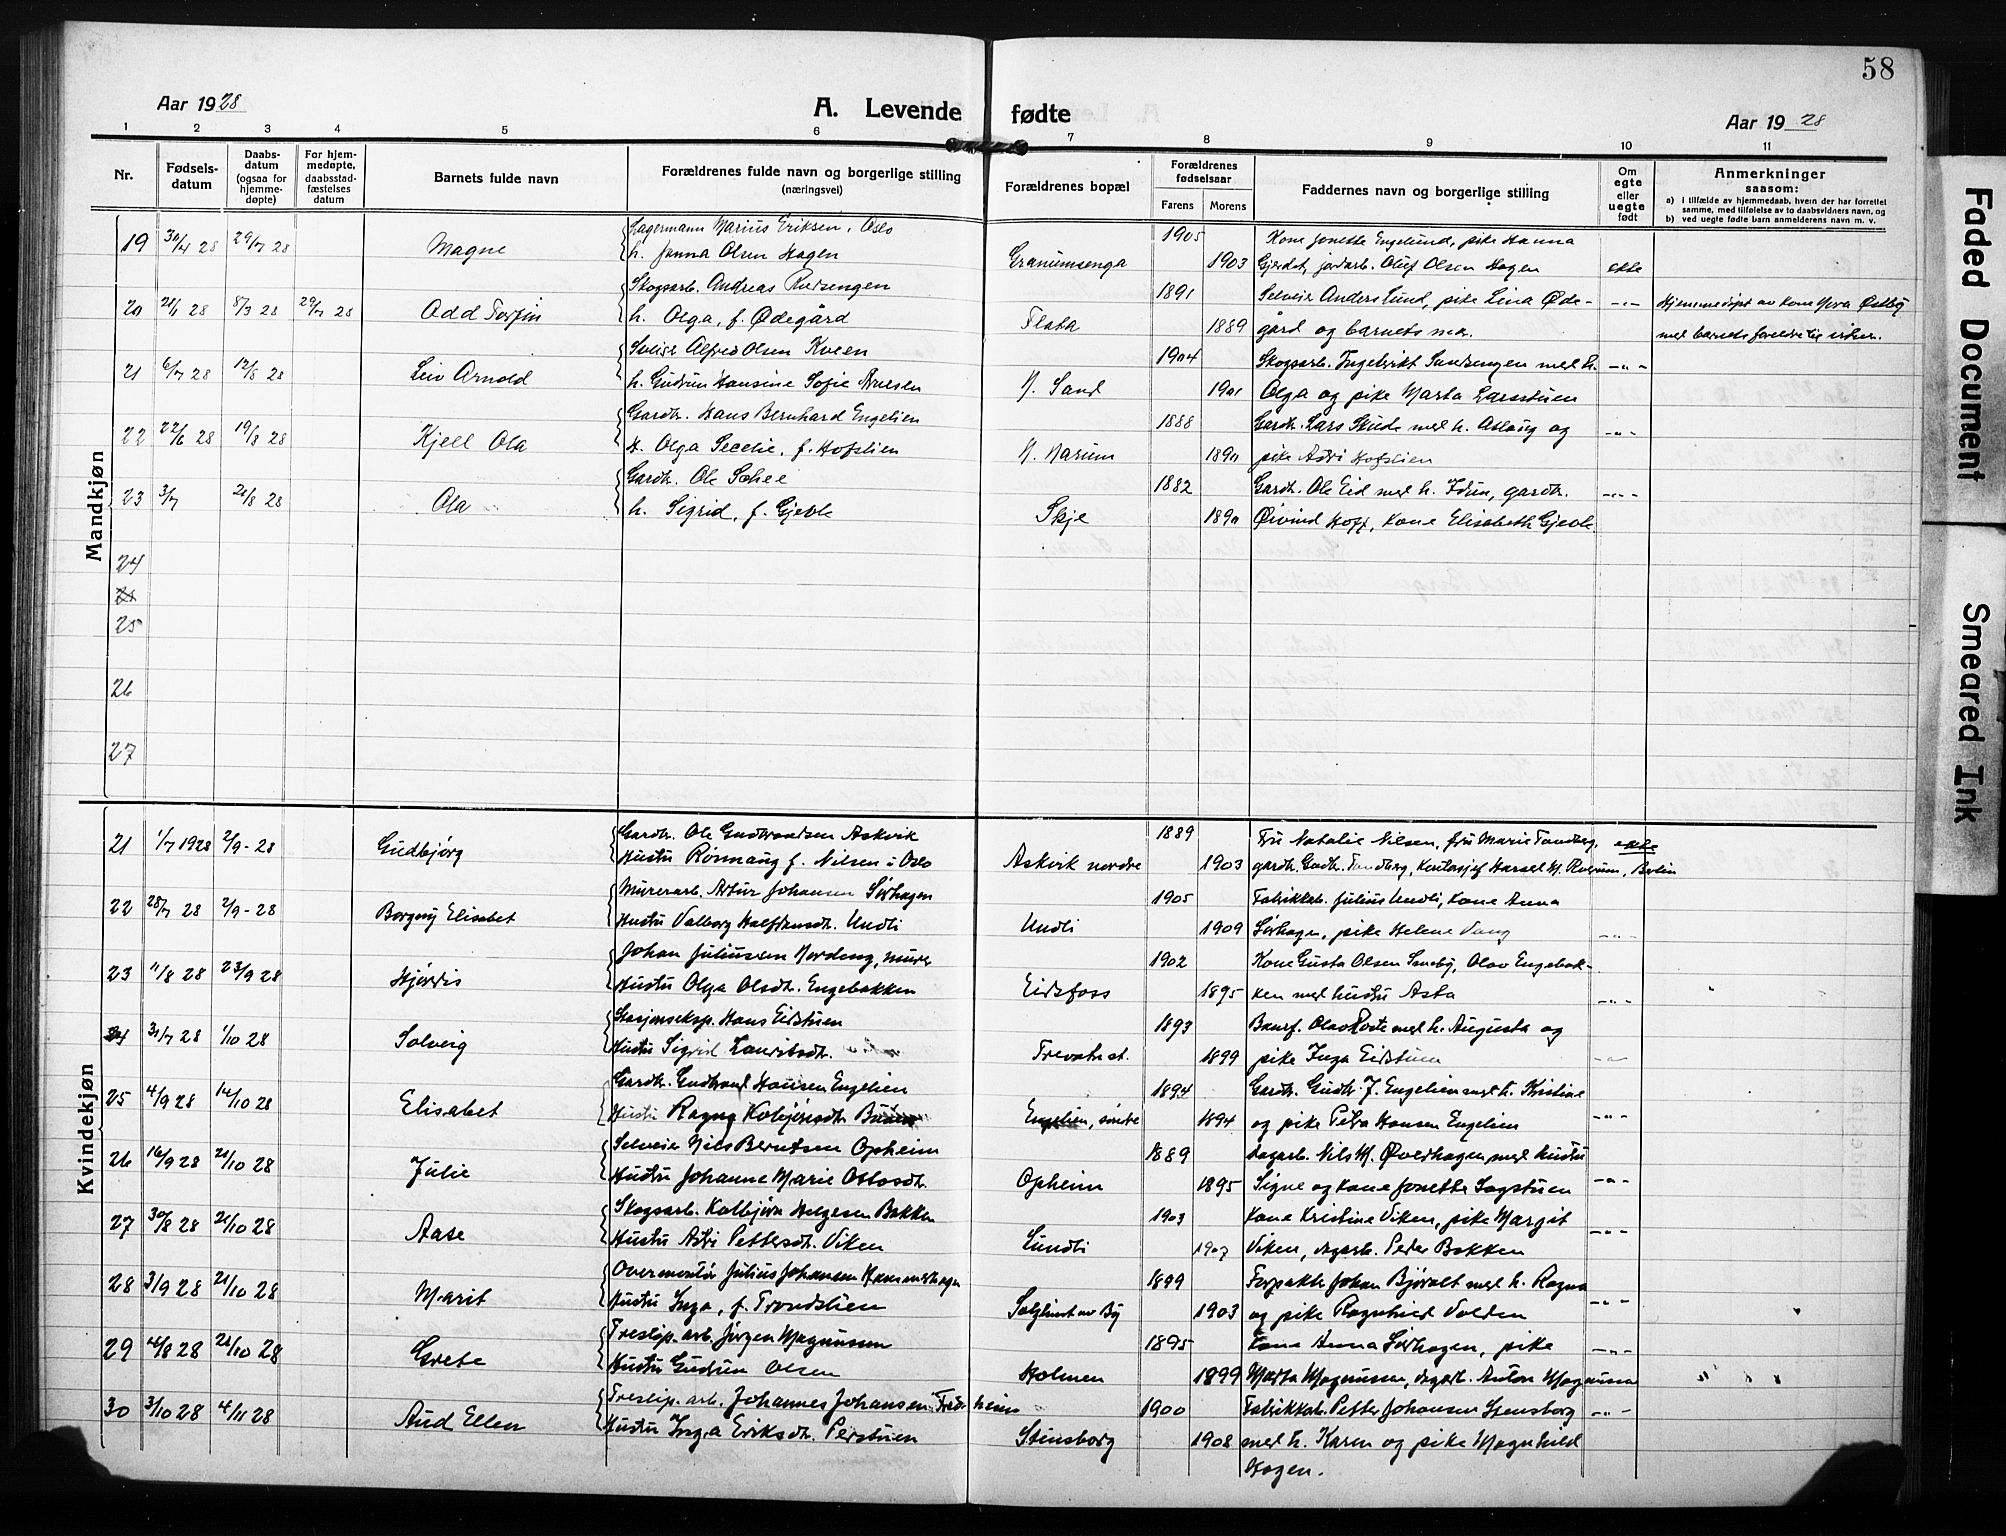 58
Aar 1928
A. Levende fødte
Aar 1928
1 2 3 4 5 6 7 8 9 10 11
Nr.
Fødsels-
datum
Daabs-
datum
(ogsaa for
hjemme-
døpte)
For hjem-
medøpte,
daabsstad-
fæstelses
datum
Barnets fulde navn
Forældrenes fulde navn og borgerlige stilling
(næringsvei)
Forældrenes bopæl
Forældrenes
fødselsaar
Farens Morens
Faddernes navn og borgerlige stilling
Om
egte
eller
uegte
født
Anmerkninger
saasom:
a) I tilfælde av hjemmedaab, hvem der har forrettet
samme, med tilføielse av to daabsvidners navn, og
b) ved uegte fødte barn anmelderens navn m. v.
Mandkjøn
Lagermann Marius Eriksen, Oslo 1905 Kone Jonette Engelund, pike Hanna
19 30/4 28 29/7 28 Magne h. Janna Olsen Hagen Granumsenga 1903 Gjerdet, jordarb. Oluf Olsen Hagen ekte
Skogsarb. Andreas 1891 Selveier Anders Lund, pike Lina Øde- -"-
20 21/1 28 8/3 28 29/7 28 Odd Torfin h. Olga, f. Ødegård Flata 1889 gård og barnets mor.
Hjemmedøpt av kone Østby
med barnets foreldre til
Alfred Olsen Kveen 1904 Skogsarb. Ingebrikt med h. -"-
21 6/7 28 12/8 28 Leiv Arnold h. Gudrun Hansine Sofie N. Sand 1901 Olga og pike Marta Larsstuen
Gardbr. Hans Bernhard Engelien 1888 Gardb. Lars Skude med h. Aslaug og -"-
22 22/6 28 19/8 28 Kjell Ola h. Olga Secelie, f. Hofslien N. Narum 1890 pike Astri Hofslien
Gardbr. Ole Schee 1882 Gardbr. Ole Eid med h. Idun, gardbr. -"-
23 3/7 21/8 28 Ola h. Sigrid, f. Gjevle Skje 1890 Øivind Hoff, kone Elisabeth Gjevle
24
25
26
27
Kvindekjøn
Gardbr. Ole Gudbrandsen Askvik 1889 Fru Natalie Nilsen, fru Marie Tandberg, ekte
21 1/7 1928 2/9 - 28 Gudbjørg Hustru Rønnaug f. Nilsen i Oslo Askvik nordre 1903 gardbr. Gudbr. Tandberg, Berlin
Murerarb. Artur Johansen Sørhagen 1905 Fabrikkarb. Julius Undli, kone Anna
22 28/7 28 2/9 - 28 Borgny Elisabet Hustru Valborg Halfdansdtr. Undli Undli 1909 Sørhagen, pike Helene Vang -"-
Johan Juliussen Nordeng, murer 1902 Kone Gusta Olsen Seneby, Olav Engebak-
23 11/8 28 23/9 28 Hjørdis Hustru Olga Olsdtr. Engebakken Eidsfoss 1895 ken med hustru Asta -"-
Stasjonseksp. Hans Eidstuen 1893 Banef. Olav med h. Augusta og
24 31/7 28 1/10 28 Solveig Hustru Sigrid Lauritsdtr. Trevatn st. 1899 pike Inga Eidstuen -"-
Gardbr. Gudbrand Hansen Engelien 1894 Gardbr. Gudbr. J. Engelien med h. Kristine
25 4/9 28 14/10 28 Elisabet Hustru Ragna Kolbjørnsdtr. Engelien, søndre 1894 og pike Petra Hansen Engelien -"-
Selveier Nils Berntsen Opheim 1889 Dagarb. Nils M. Øverhagen med hustru
26 16/9 28 21/10 28 Julie Hustru Johanne Marie Ottosdtr. Opheim 1895 Signe og kone Jonette Sagstuen -"-
Skogsarb. Kolbjørn Helgesen Bakken 1903 Kone Kristine Viken, pike Margit
27 30/8 28 21/10 28 Aase Hustru Astri Pettersdtr. Viken Lundli 1907 Viken, dagarb. Peder Bakken -"-
Overmontør Julius Johansen Hammerhagen 1899 Forpakter Johan Bjørnli med h. Ragna
28 3/9 28 21/10 28 Marit Hustru Inga, f. Trondslien 1903 og pike Ragnhild Volden -"-
Treslip. arb. Jørgen Magnussen 1895 Kone Anna Sørhagen, pike -"-
29 4/8 28 21/10 28 Grete Hustru Gudrun Olsen Holmen 1899 Marta Magnussen, dagarb. Anton Magnussen
Treslip. arb. Johannes Johansen Fredheim 1900 Fabrikkarb. Petter Johansen Stensborg -"-
30 3/10 28 4/11 28 Aud Ellen Hustru Inga Eriksdtr. Perstuen Stensborg 1908 med h. Karen og pike Magnhild
Hagen.
Faded Document
Smeared Ink